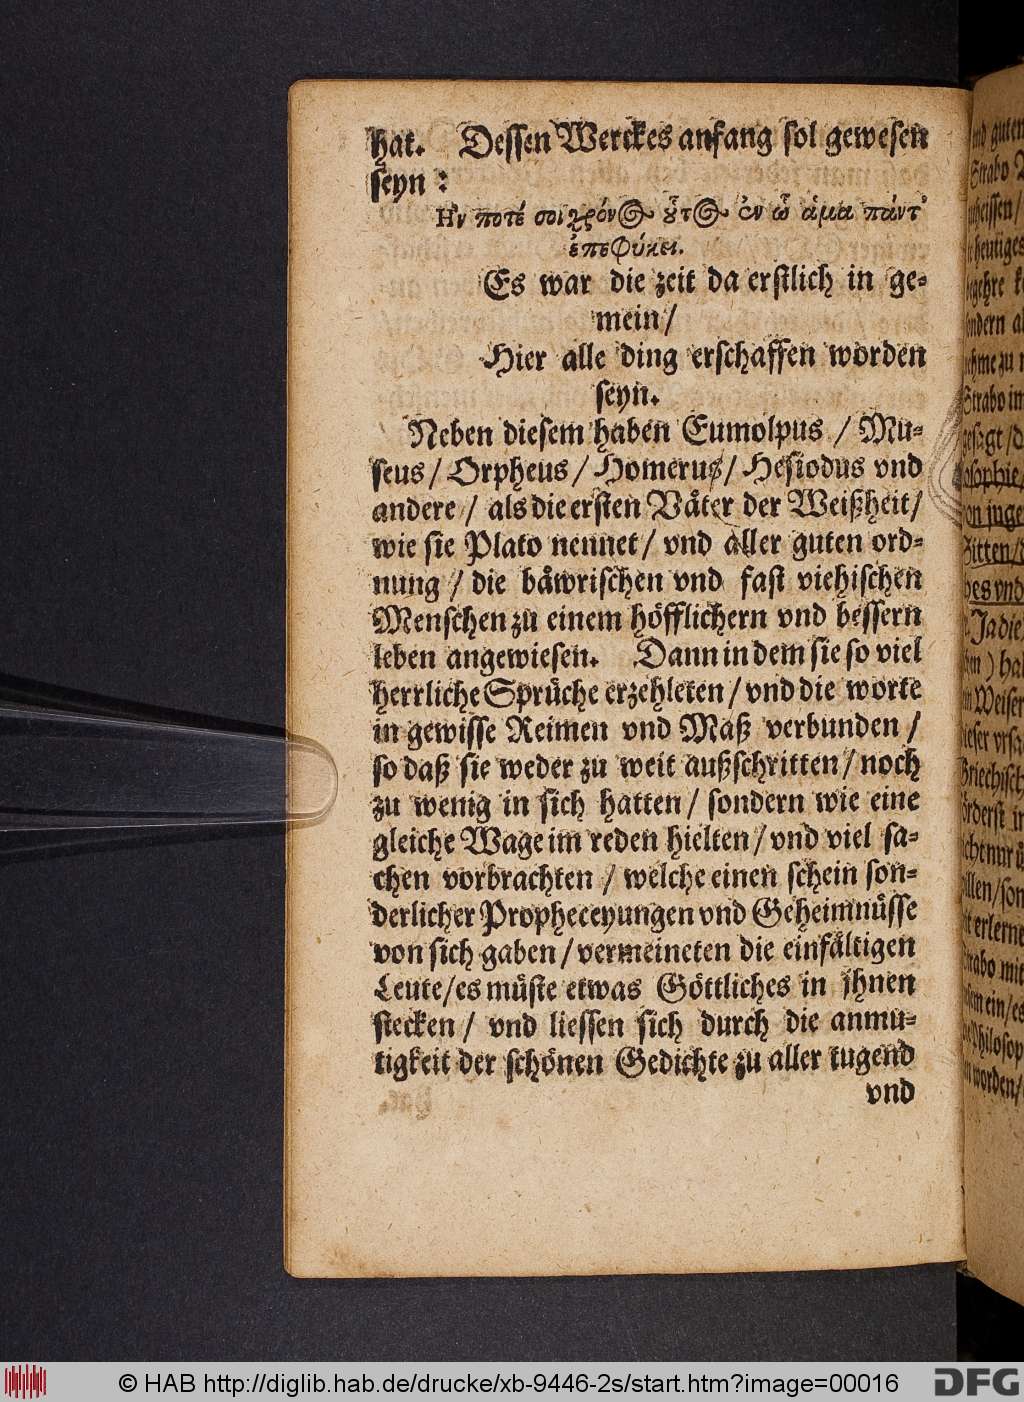 hat. Dessen Werckes anfang sol gewesen
seyn :
Ην ποτέ σοι χρόνος ὗτος ἐν ᾧ ἅμα πάντ'
ἐπεφύκει.
Es war die zeit da erstlich in ge-
mein /
Hier alle ding erschaffen worden
seyn.
Neben diesem haben Eumolpus / Mu-
seus / Orpheus / Homerus / Hesiodus vnd
andere / als die ersten Väter der Weißheit /
wie sie Plato nennet / vnd aller guten ord-
nung / die bäwrischen vnd fast viehischen
Menschen zu einem höfflichern vnd bessern
leben angewiesen. Dann in dem sie so viel
herrliche Sprüche erzehleten / vnd die worte
in gewisse Reimen vnd Maß verbunden /
so daß sie weder zu weit außschritten / noch
zu wenig in sich hatten / sondern wie eine
gleiche Wage im reden hielten / vnd viel sa-
chen vorbrachten / welche einen schein son-
derlicher Propheceyungen vnd Geheimnüsse
von sich gaben / vermeineten die einfältigen
Leute / es müste etwas Göttliches in jhnen
stecken / vnd liessen sich durch die anmu-
tigkeit der schönen Gedichte zu aller tugend
vnd
© HAB http://diglib.hab.de/drucke/xb-9446-2s/start.htm?image=00016
DFG